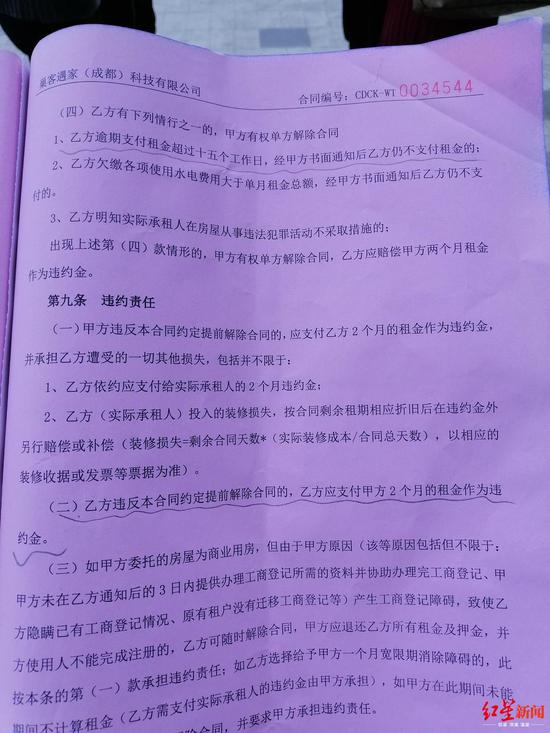 巢客遇家（成都）科技有限公司
合同编号：CDCK-WT 0034544
（四）乙方有下列情行之一的，甲方有权单方解除合同
1、乙方逾期支付租金超过十五个工作日，经甲方书面通知后乙方仍不支付租金的；
2、乙方欠缴各项使用水电费用大于单月租金总额，经甲方书面通知后乙方仍不支
付的。
3、乙方明知实际承租人在房屋从事违法犯罪活动不采取措施的；
出现上述第（四）款情形的，甲方有权单方解除合同，乙方应赔偿甲方两个月租金
作为违约金。
第九条 违约责任
（一）甲方违反本合同约定提前解除合同的，应支付乙方 2 个月的租金作为违约金，
并承担乙方遭受的一切其他损失，包括并不限于：
1、乙方依约应支付给实际承租人的 2 个月违约金；
2、乙方（实际承租人）投入的装修损失，按合同剩余租期相应折旧后在违约金外
另行赔偿或补偿（装修损失=剩余合同天数*（实际装修成本/合同总天数），以相应的
装修收据或发票等票据为准）。
（二）乙方违反本合同约定提前解除合同的，乙方应支付甲方 2 个月的租金作为违
约金。
（三）如甲方委托的房屋为商业用房，但由于甲方原因（该等原因包括但不限于：
甲方未在乙方通知后的 3 日内提供办理工商登记所需的资料并协助办理完工商登记、甲
方隐瞒已有工商登记情况、原有租户没有迁移工商登记等）产生工商登记障碍，致使乙
方使用人不能完成注册的，乙方可随时解除合同，甲方应退还乙方所有租金及押金，并
按本条的第（一）款承担违约责任；如乙方选择给予甲方一个月宽限期消除障碍的，此
期间不计算租金（乙方需支付实际承租人的违约金由甲方承担），如甲方在此期间未能
解除合同，并要求甲方承担违约责任。
红星新闻